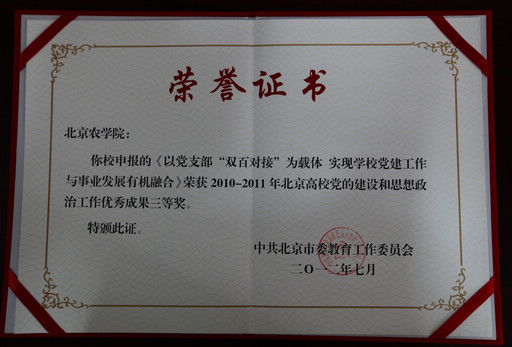 荣誉证书
北京农学院：
你校申报的《以党支部“双百对接”为载体 实现学校党建工作
与事业发展有机融合》荣获 2010-2011 年北京高校党的建设和思想政
治工作优秀成果三等奖。
特颁此证。
中共北京市委教育工作委员会
二〇一二年七月